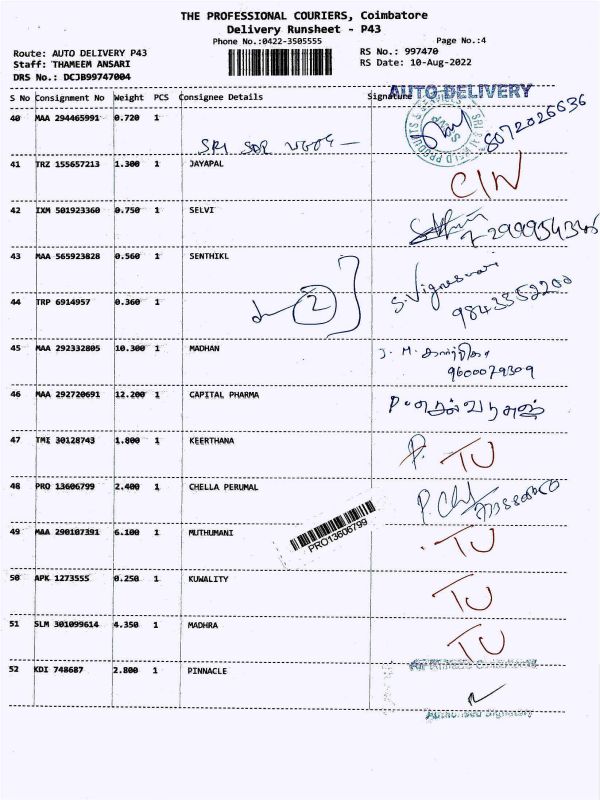 THE PROFESSIONAL COURIERS, Coimbatore
Delivery Runsheet - P43
Phone No.:0422-3505555
Page No.:4
Route: AUTO DELIVERY P43
RS No.: 997470
Staff: THAMEEM ANSARI
RS Date: 10-Aug-2022
DRS No.: DCJB99747004
AUTO DELIVERY
S No Consignment No Weight PCS Consignee Details Signature
40 MAA 294465991 0.720 1
8072026636
41 TRZ 155657213 1.300 1 JAYAPAL
CIN
42 IXM 501923360 0.750 1 SELVI
43 MAA 565923828 0.560 1 SENTHIKL
S. Vigneswari
9843352200
44 TRP 6914957 0.360 1
2
45 MAA 292332805 10.300 1 MADHAN
J. M.
9600079309
46 MAA 292720691 12.200 1 CAPITAL PHARMA
47 TMI 30128743 1.800 1 KEERTHANA
P. TU
48 PRO 13606799 2.400 1 CHELLA PERUMAL
PRO13606799
49 MAA 290107391 6.100 1 MUTHUMANI
TU
50 APK 1273555 0.250 1 KUWALITY
TU
51 SLM 301099614 4.350 1 MADHRA
TU
52 KDI 748687 2.800 1 PINNACLE
Authorised Signatory